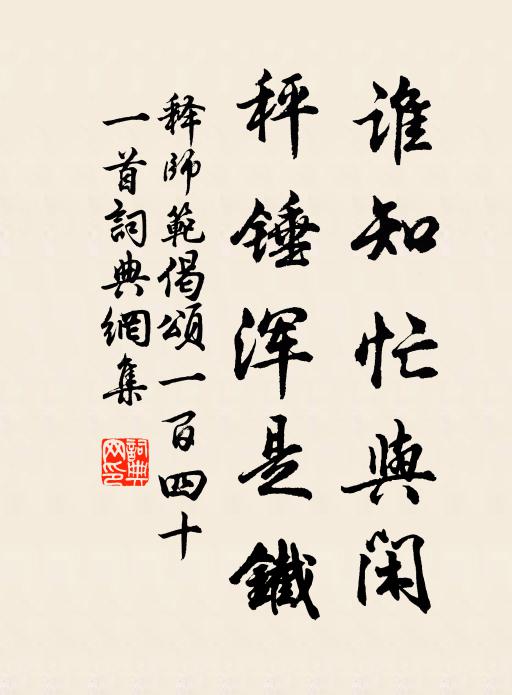 誰知忙與閑
秤錘浑是鐵
释師範偈頌一百四十
一首詞典網集
詞典
网印